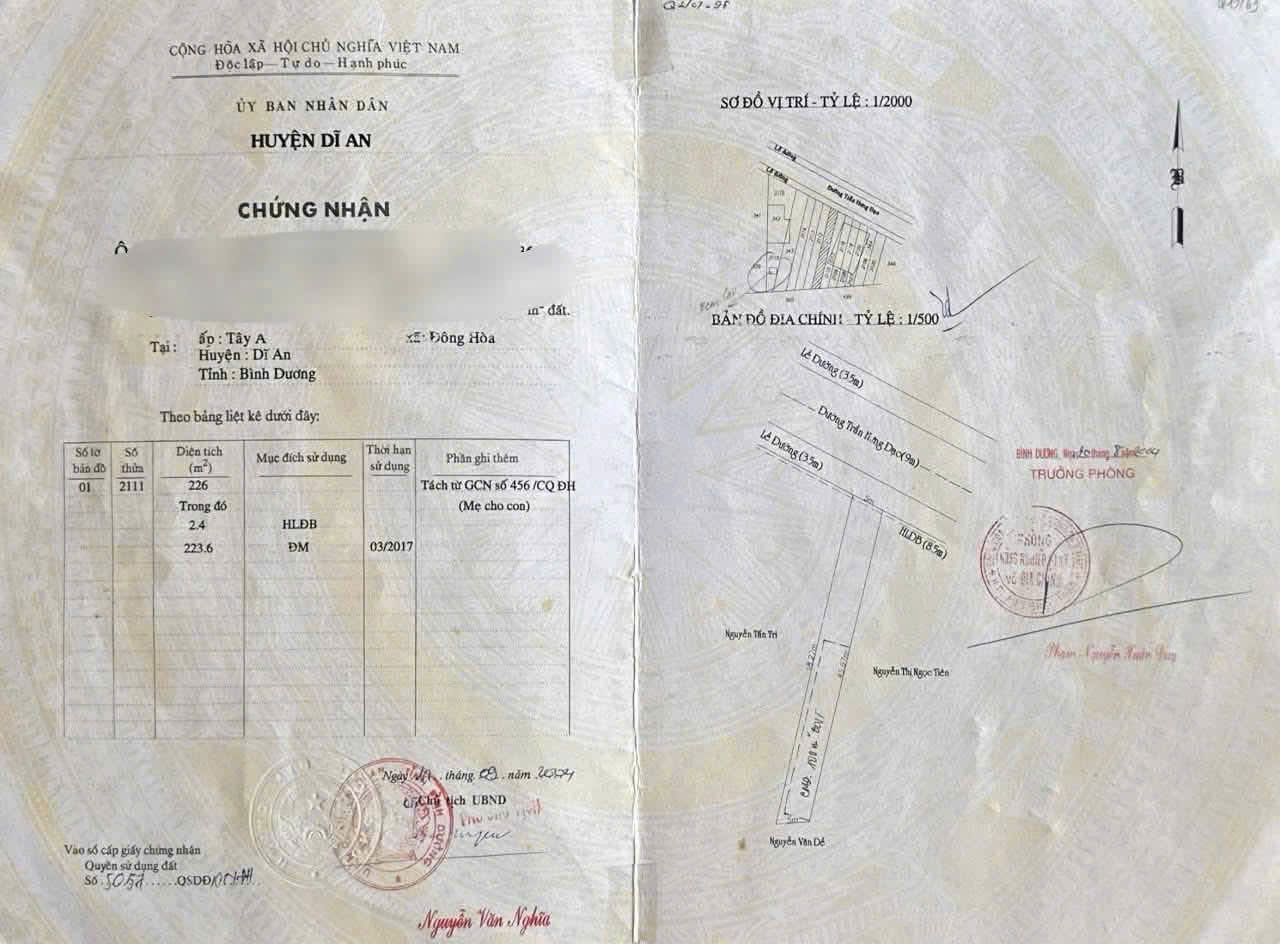 CỘNG HÒA XÃ HỘI CHỦ NGHĨA VIỆT NAM
Độc lập — Tự do — Hạnh phúc
ỦY BAN NHÂN DÂN
HUYỆN DĨ AN
CHỨNG NHẬN
m² đất.
Tại : ấp : Tây A xã: Đông Hòa
Huyện : Dĩ An
Tỉnh : Bình Dương
Theo bảng liệt kê dưới đây:
Số tờ bản đồ Số thửa Diện tích (m²) Mục đích sử dụng Thời hạn sử dụng Phần ghi thêm
01 2111 226 Tách từ GCN số 456 /CQ ĐH
Trong đó (Mẹ cho con)
2.4 HLĐB
223.6 ĐM 03/2017
Ngày tháng 09 năm 2004
Chủ tịch UBND
Vào sổ cấp giấy chứng nhận
Quyền sử dụng đất
Số 5057 QSDĐ/
Nguyễn Văn Nghĩa
SƠ ĐỒ VỊ TRÍ - TỶ LỆ : 1/2000
Lề đường
Lề đường
Đường Trần Hưng Đạo
BẢN ĐỒ ĐỊA CHÍNH - TỶ LỆ : 1/500
Lề Đường (3.5m)
Đường Trần Hưng Đạo(9m)
Lề Đường (3.5m)
HLĐB (8.5m)
BÌNH DƯƠNG, Ngày 20 tháng 8 năm 2004
TRƯỞNG PHÒNG
Nguyễn Tấn Trí
Nguyễn Thị Ngọc Tiên
5m
Nguyễn Văn Dể
Phạm Nguyễn Xuân Duy